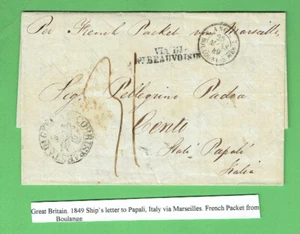 Per French Packet via Marseille
VIA DI
PT BEAUVOISIN
Sig. Pellegrino Padoa
Cento
Stati Papali
Italia
Great Britain. 1849 Ship's letter to Papali, Italy via Marseilles. French Packet from
Boulange